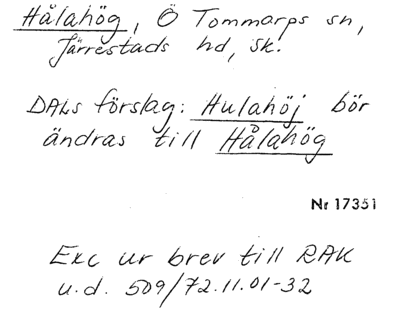 Hålahög, Ö Tommarps sn,
Järrestads hd, Sk.
DALs förslag: Hulahöj bör
ändras till Hålahög
Nr 17351
Exc ur brev till RAK
u.d. 509/72.11.01-32